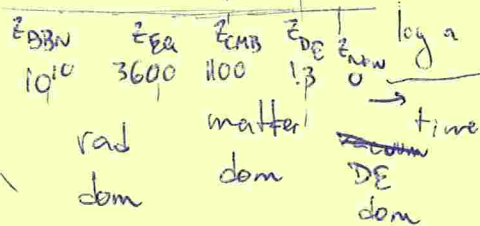 z_BBN z_EQ z_CMB z_DE z_NOW log a
10^10 3600 1100 1.3 0
→ time
rad matter
dom dom DE
dom